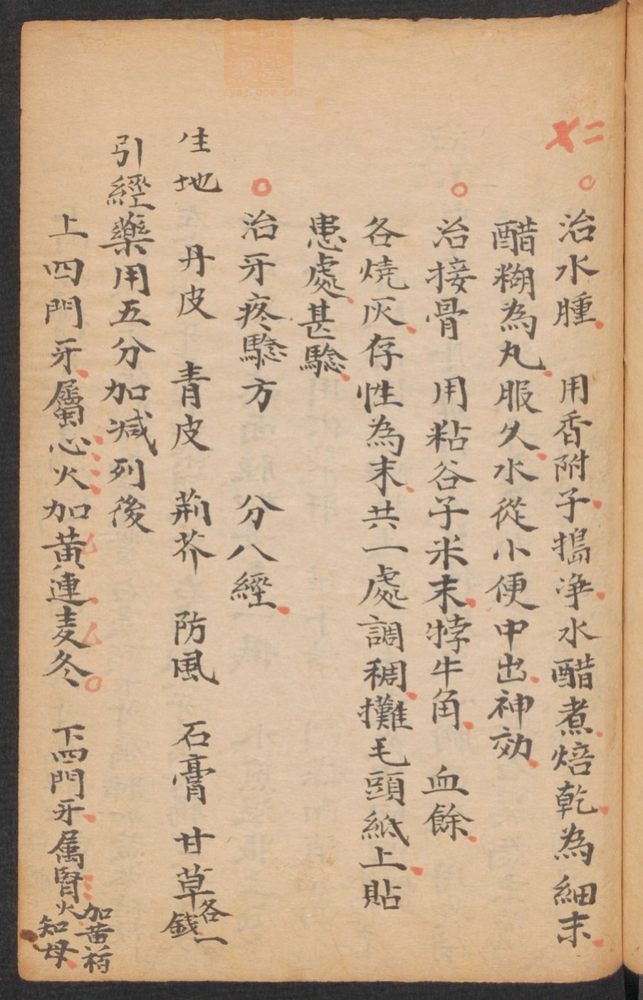 〤二
治水腫　用香附子搗净水醋煮焙乾為細末
醋糊為丸服久水從小便中出神効
治接骨　用粘谷子米末牸牛角　血餘
各燒灰存性為末共一處調稠攤毛頭紙上貼
患處甚騐
治牙疼騐方　分八經
生地　丹皮　青皮　荊芥　防風　石膏　甘草各一錢
引經藥用五分加减列後
上四門牙屬心火加黄連麦冬　下四門牙属腎火加黄栢知母